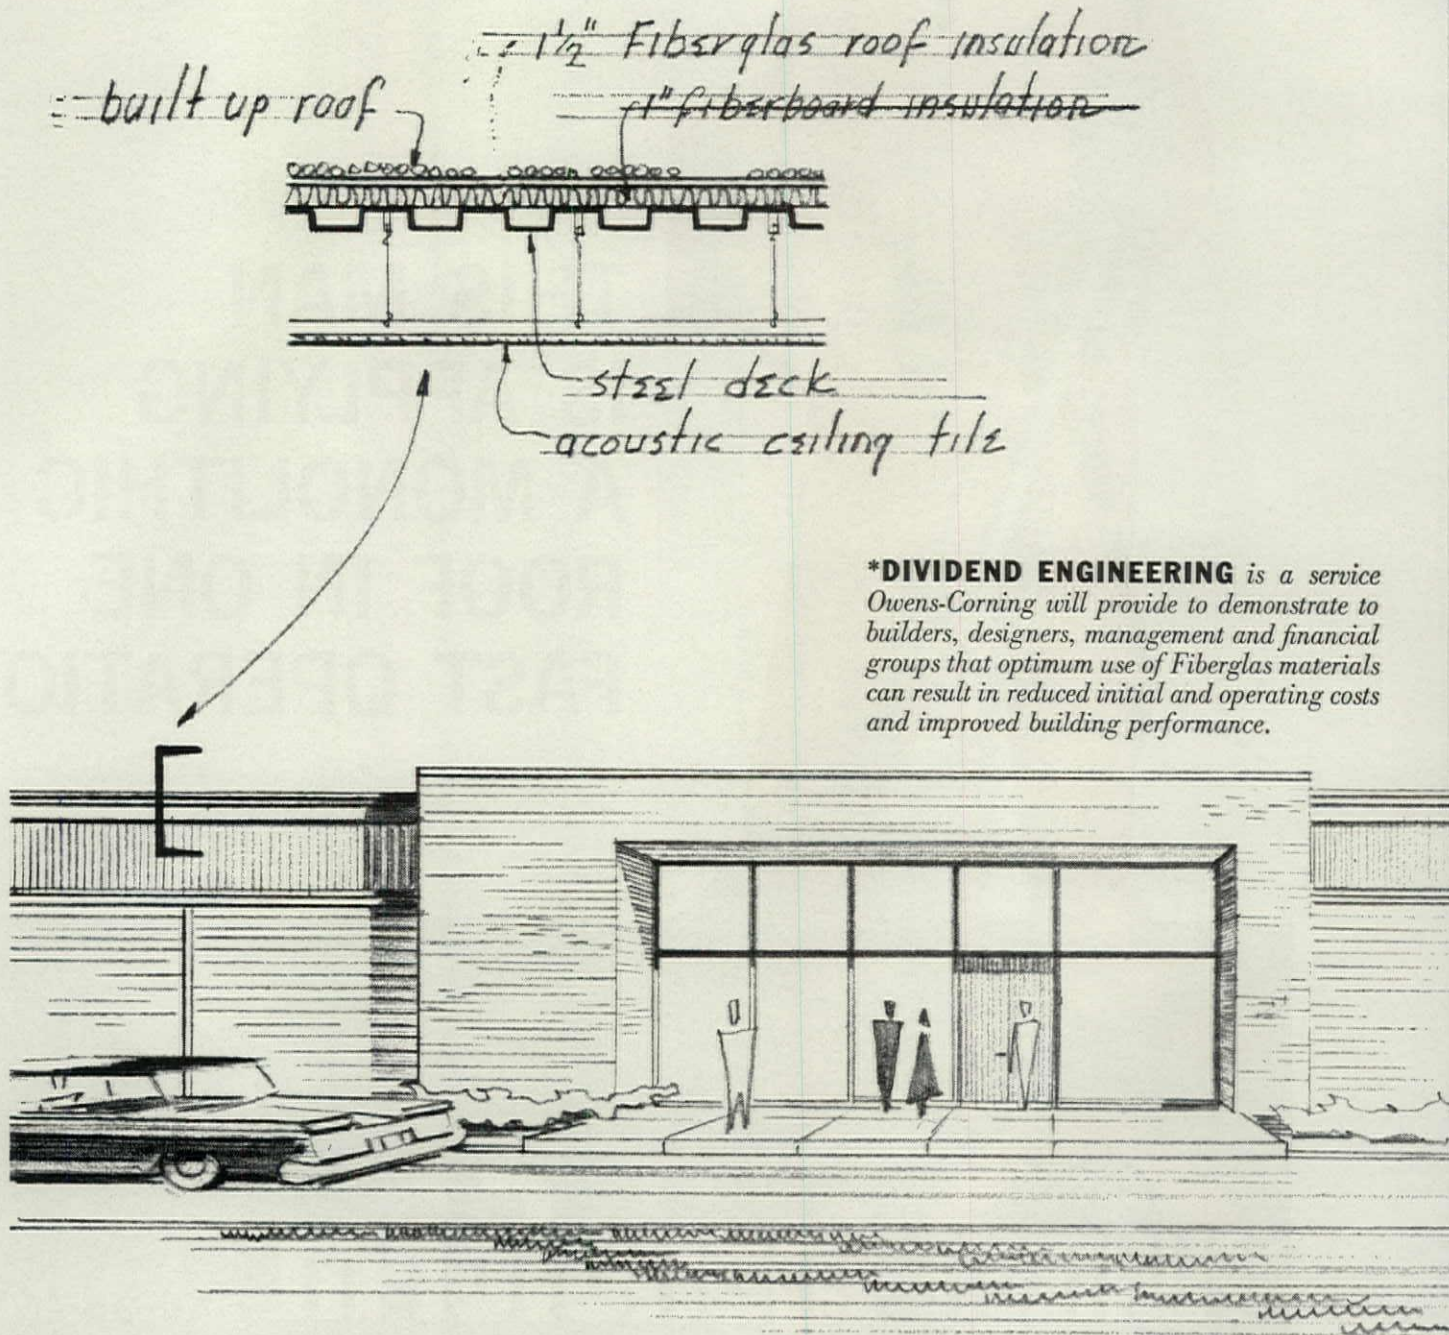 1½" Fiberglas roof insulation
built up roof
1" fiberboard insulation
steel deck
acoustic ceiling tile
*DIVIDEND ENGINEERING is a service
Owens-Corning will provide to demonstrate to
builders, designers, management and financial
groups that optimum use of Fiberglas materials
can result in reduced initial and operating costs
and improved building performance.